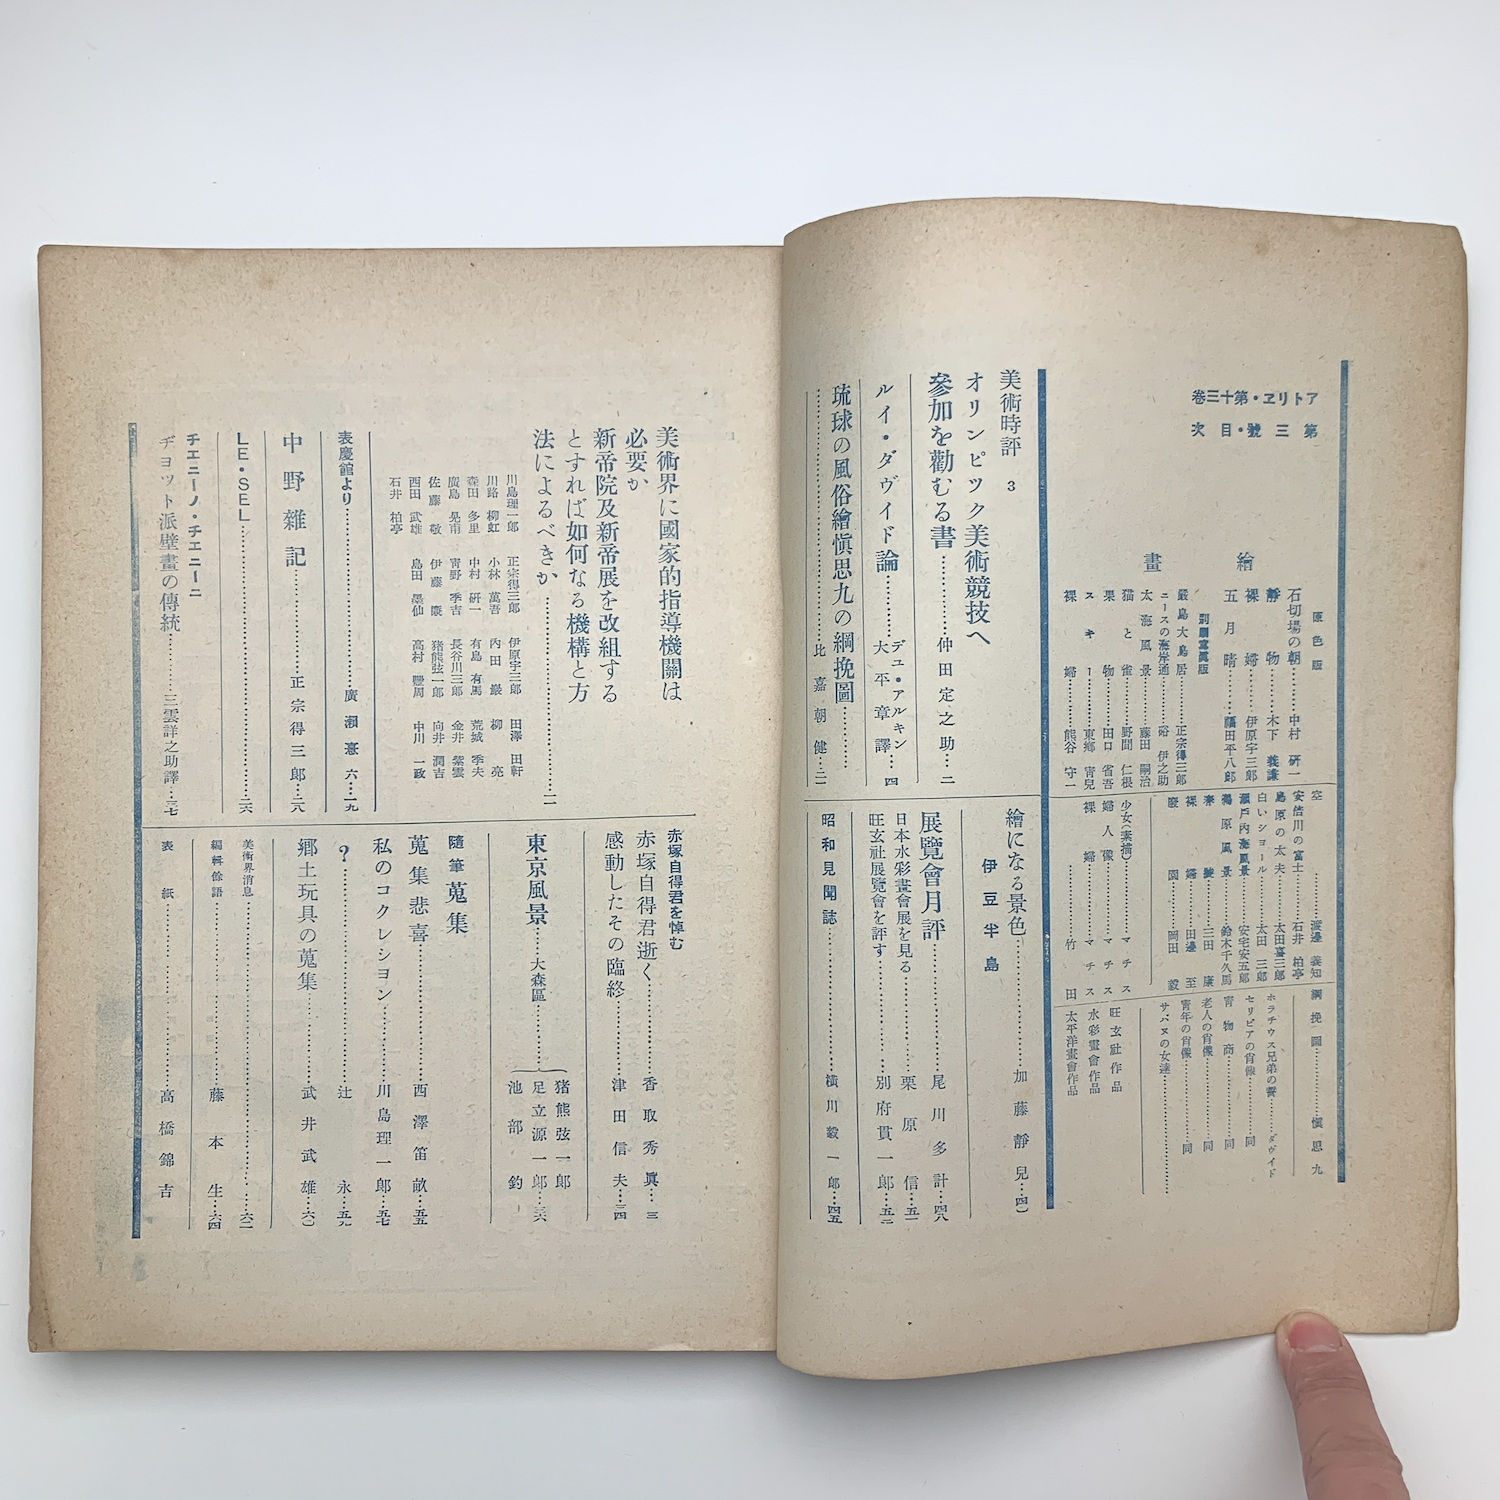 アトリエ・第十三卷
第三號・目次
繪畫
原色版
石切場の朝………中村研一
靜物………木下義謙
裸婦………伊原宇三郎
五月晴………福田平八郎
別刷寫眞版
嚴島大鳥居………正宗得三郎
ニースの海岸通………硲伊之助
太海風景………藤田嗣治
猫と雀………野間仁根
果物………田口省吾
スキー………東鄕靑兒
裸婦………熊谷守一
空………渡邊義知
安倍川の富士………石井柏亭
島原の太夫………太田喜二郎
白いショール………太田三郎
瀨戸内海風景………安宅安五郎
湯原風景………鈴木千久馬
春………三田康
裸婦………田邊至
閑………岡田毅
少女(素描)………マチス
婦人像………マチス
裸婦………竹田
綱挽圖………愼思九
ホラチウス兄弟の誓………ダヴィド
セリジアの肖像………同
靑物商………同
老人の肖像………同
靑年の肖像………同
サバヌの女達………
旺玄社作品
水彩畫會作品
太平洋畫會作品
美術時評 3
オリンピック美術競技へ
參加を勸むる書………仲田定之助…二
ルイ・ダヴィド論………デュ・アルキン
大平章譯…四
琉球の風俗繪愼思九の綱挽圖………
比嘉朝健…二二
繪になる景色………加藤靜兒…四〇
伊豆半島
展覽會月評………尾川多計…四八
日本水彩畫會展を見る………栗原信…五一
旺玄社展覽會を評す………別府貫一郎…五二
昭和見聞誌………橫川毅一郎…四五
美術界に國家的指導機關は
必要か
新帝院及新帝展を改組する
とすれば如何なる機構と方
法によるべきか………一一
川島理一郎 正宗得三郎 伊原宇三郎 田澤田軒
川路柳虹 小林萬吾 內田巖 柳亮
森田多里 中村研一 有島有馬 荒城季夫
廣島晃甫 靑野季吉 長谷川三郎 金井紫雲
佐藤敬 伊藤廉 猪熊弦一郎 向井潤吉
西田武雄 島田墨仙 高村豐周 中川一政
石井柏亭
表慶館より………廣瀨憙六…一九
中野雜記………正宗得三郎…二八
LE・SEL………二六
チエニーノ・チエニーニ
ヂョット派壁畫の傳統………三雲詳之助譯…三七
赤塚自得君を悼む
赤塚自得君逝く………香取秀眞…三
感動したその臨終………津田信夫…三四
東京風景……大森區………猪熊弦一郎
足立源一郎…三六
池部鈞
隨筆蒐集
蒐集悲喜………西澤笛畝…五五
私のコクレション………川島理一郎…五七
?………辻永…五九
鄕土玩具の蒐集………武井武雄…六〇
美術界消息………六二
編輯餘語………藤本生…六四
表紙………高橋錦吉